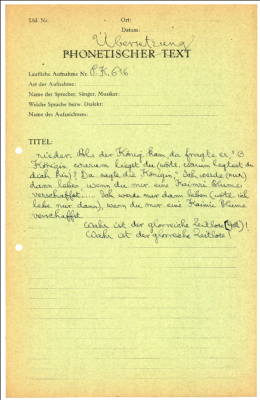 Lfd. Nr.
Ort:
Datum:
Übersetzung
PHONETISCHER TEXT
Lautliche Aufnahme Nr. P.K. 616
Art der Aufnahme:
Name der Sprecher, Sänger, Musiker:
Welche Sprache bezw. Dialekt:
Name des Aufzeichners:
TITEL:
nieder. Als der König kam, da fragte er "O
Königin warum liegst du (wörtl. warum legtest du
dich hin)? Da sagte die Königin, "Ich werde (nur)
dann leben wenn du mir eine Kaimie Blume
verschaffst..... Ich werde nur dann leben (wörtl. ich
lebe nur dann), wenn du mir eine Kaimie Blume
verschaffst.
Wahr ist der glorreiche Zeitlose
Wahr ist der glorreiche Zeitlose!